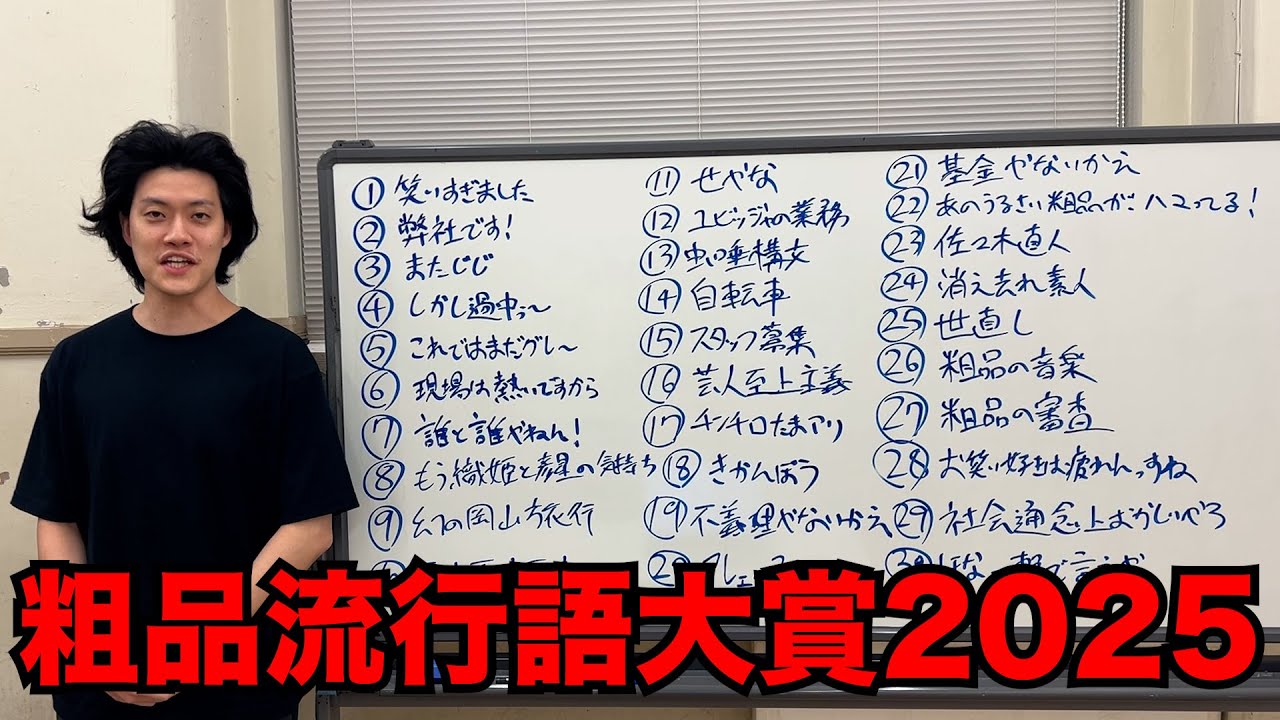 ① 笑いすぎました
② 弊社です!
③ またじじ
④ しかし過中ぅ〜
⑤ これではまだグレ〜
⑥ 現場は熱いですから
⑦ 誰と誰やねん!
⑧ もう織姫と彦星の気持ち
⑨ 幻の岡山旅行
⑪ せやな
⑫ ユビッジャの業務
⑬ 虫の垂構文
⑭ 自転車
⑮ スタッフ募集
⑯ 芸人至上主義
⑰ チンチロたまアリ
⑱ きかんぼう
⑲ 不義理やないかえ
㉑ 基金やないかえ
㉒ あのうるさい粗品がハマってる!
㉓ 佐々木直人
㉔ 消え去れ素人
㉕ 世直し
㉖ 粗品の音楽
㉗ 粗品の審査
㉘ お笑い好きは疲れんっすね
㉙ 社会通念上おかしいやろ
粗品流行語大賞2025